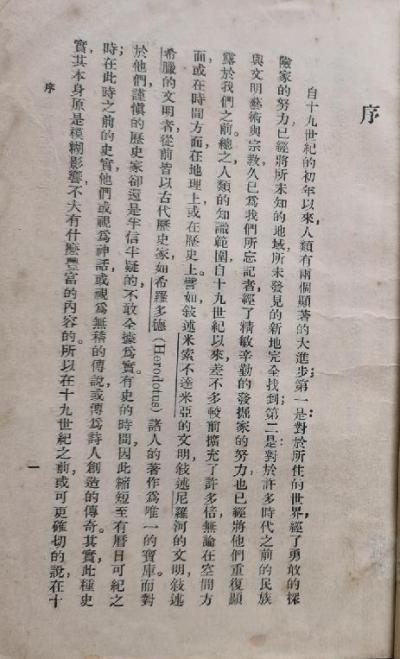 序
自十九世紀的初年以來人類有兩個顯著的大進步：第一是對於所住的世界，經了勇敢的探
險家的努力，已經將所未知的地域，所未發見的新地完全找到；第二是對於許多時代之前的民族
與文明藝術與宗教，久已爲我們所忘記者，經了精敏辛勤的發掘家的努力，也已經將他們重復顯
露於我們之前。總之，人類的知識範圍，自十九世紀以來，差不多較前擴充了許多倍，無論在空間方
面或在時間方面，在地理上或在歷史上。譬如敍述米索不達米亞的文明，敍述尼羅河的文明，敍述
希臘的文明者，從前皆以古代歷史家如希羅多德(Herodotus)諸人的著作爲唯一的寶庫，而對
於他們，謹愼的歷史家卻還是半信半疑的，不敢全據爲實。有史的時間，因此縮短至有曆日可紀之
時；在此時之前的史實，他們或視爲神話，或視爲無稽的傳說，或傳爲詩人創造的傳奇。其實此種史
實，其本身原是模糊影響，不大有什麼豐富的內容的。所以在十九世紀之前，或可更確切的說，在十
序
一